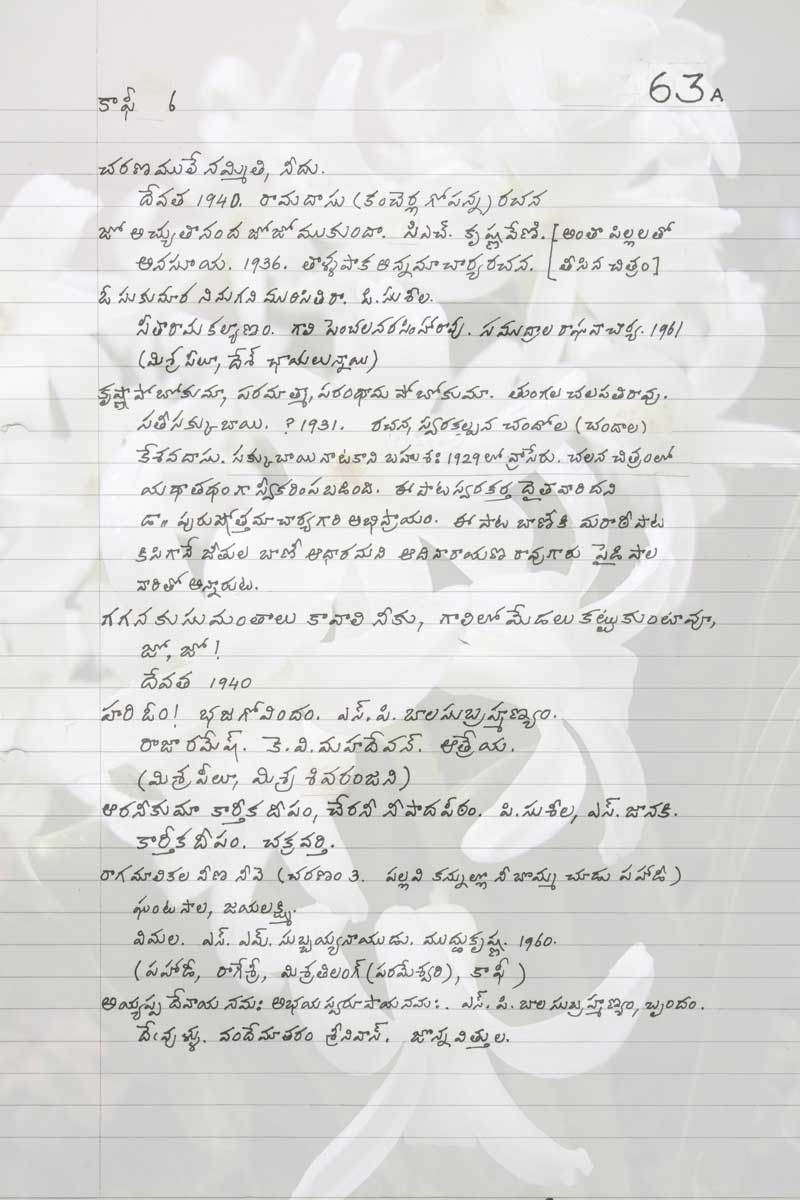 కాఫీ 6
63A
చరణములే నమ్మితి, నీదు.
దేవత 1940. రామదాసు (కంచెర్ల గోపన్న) రచన
జో అచ్యుతానంద జోజో ముకుందా. సిఎచ్. కృష్ణవేణి. [అంతా పిల్లలతో
అనసూయ. 1936. తాళ్ళపాక అన్నమాచార్య రచన. [తీసిన చిత్రం]
ఓ సుకుమార నినుగని మురిసితిరా. పి.సుశీల.
సీతారామకల్యాణం. గాలి పెంచలనరసింహారావు. సముద్రాల రాఘవాచార్య. 1961
(మిశ్ర పీలూ, దేశ్ ఛాయలున్నాయి)
కృష్ణా పోబోకుమా, పరమాత్మా, పరంధామ పోబోకుమా. తుంగల చలపతిరావు.
సతీసక్కుబాయి. ? 1931. రచన, స్వరకల్పన చందోల (చందాల)
కేశవదాసు. సక్కుబాయి నాటకాని బహుశః 1929లో వ్రాసేరు. చలన చిత్రంలో
యథాతథంగా స్వీకరింపబడింది. ఈ పాట స్వరకర్త దైతవారిదని
డా॥ పురుషోత్తమాచార్యగారి అభిప్రాయం. ఈ పాట బాణీకి మరాఠీపాట
కసిగానే జీతుల బాణీ ఆధారమని ఆదినారాయణరావుగారు పైడిపాల
వారితో అన్నారుట.
గగనకుసుమంతాలు కావాలి నీకు, గాలిలో మేడలు కట్టుకుంటావూ,
జో, జో!
దేవత 1940
హరి ఓం! భజగోవిందం. ఎస్.పి. బాలసుబ్రహ్మణ్యం.
రాజా రమేష్. కె.వి.మహదేవన్. ఆత్రేయ.
(మిశ్ర పీలు, మిశ్ర శివరంజని)
ఆరనీకుమా కార్తీక దీపం, చేరనీ నీ పాదపీఠం. పి.సుశీల, ఎస్.జానకి.
కార్తీక దీపం. చక్రవర్తి.
రాగమాలికల వీణ నీవె (చరణం 3. పల్లవి కన్నుల్లా నీ బొమ్మ చూడు పహాడీ)
ఘంటసాల, జయలక్ష్మి.
విమల. ఎస్. ఎమ్. సుబ్బయ్యనాయుడు. ముద్దుకృష్ణ. 1960.
(పహాడీ, రాగేశ్రీ, మిశ్రతిలంగ్ (పరమేశ్వరి), కాఫీ)
అయ్యప్ప దేవాయ నమః అభయస్వరూపాయనమః. ఎస్.పి. బాలసుబ్రహ్మణ్యం, బృందం.
దేవుళ్ళు. వందేమాతరం శ్రీనివాస్. జొన్నవిత్తుల.